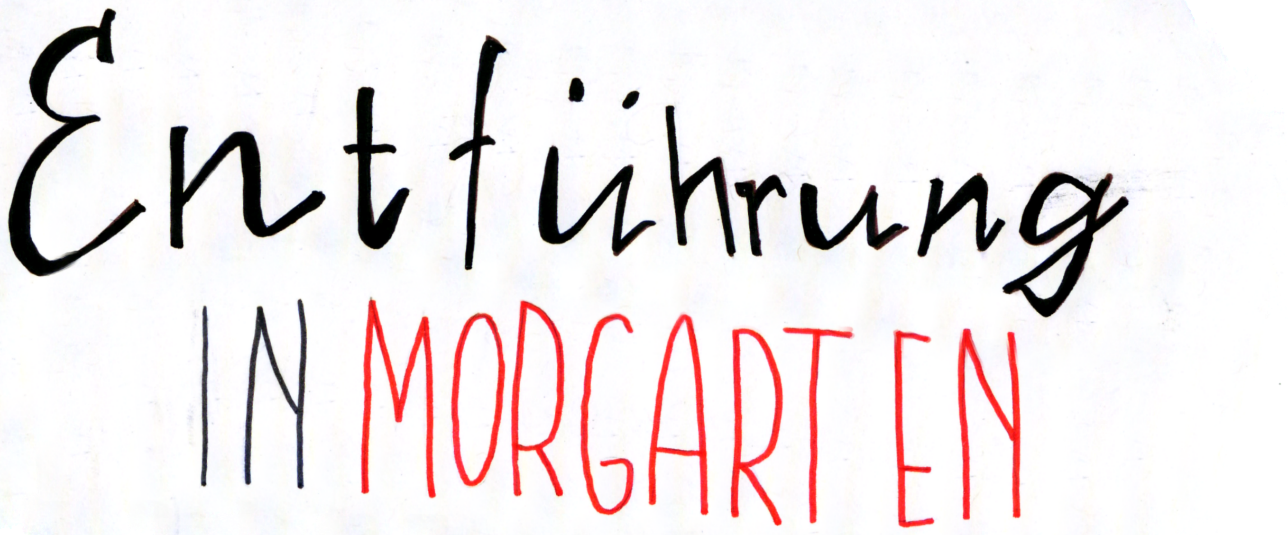 Entführung
IN MORGARTEN